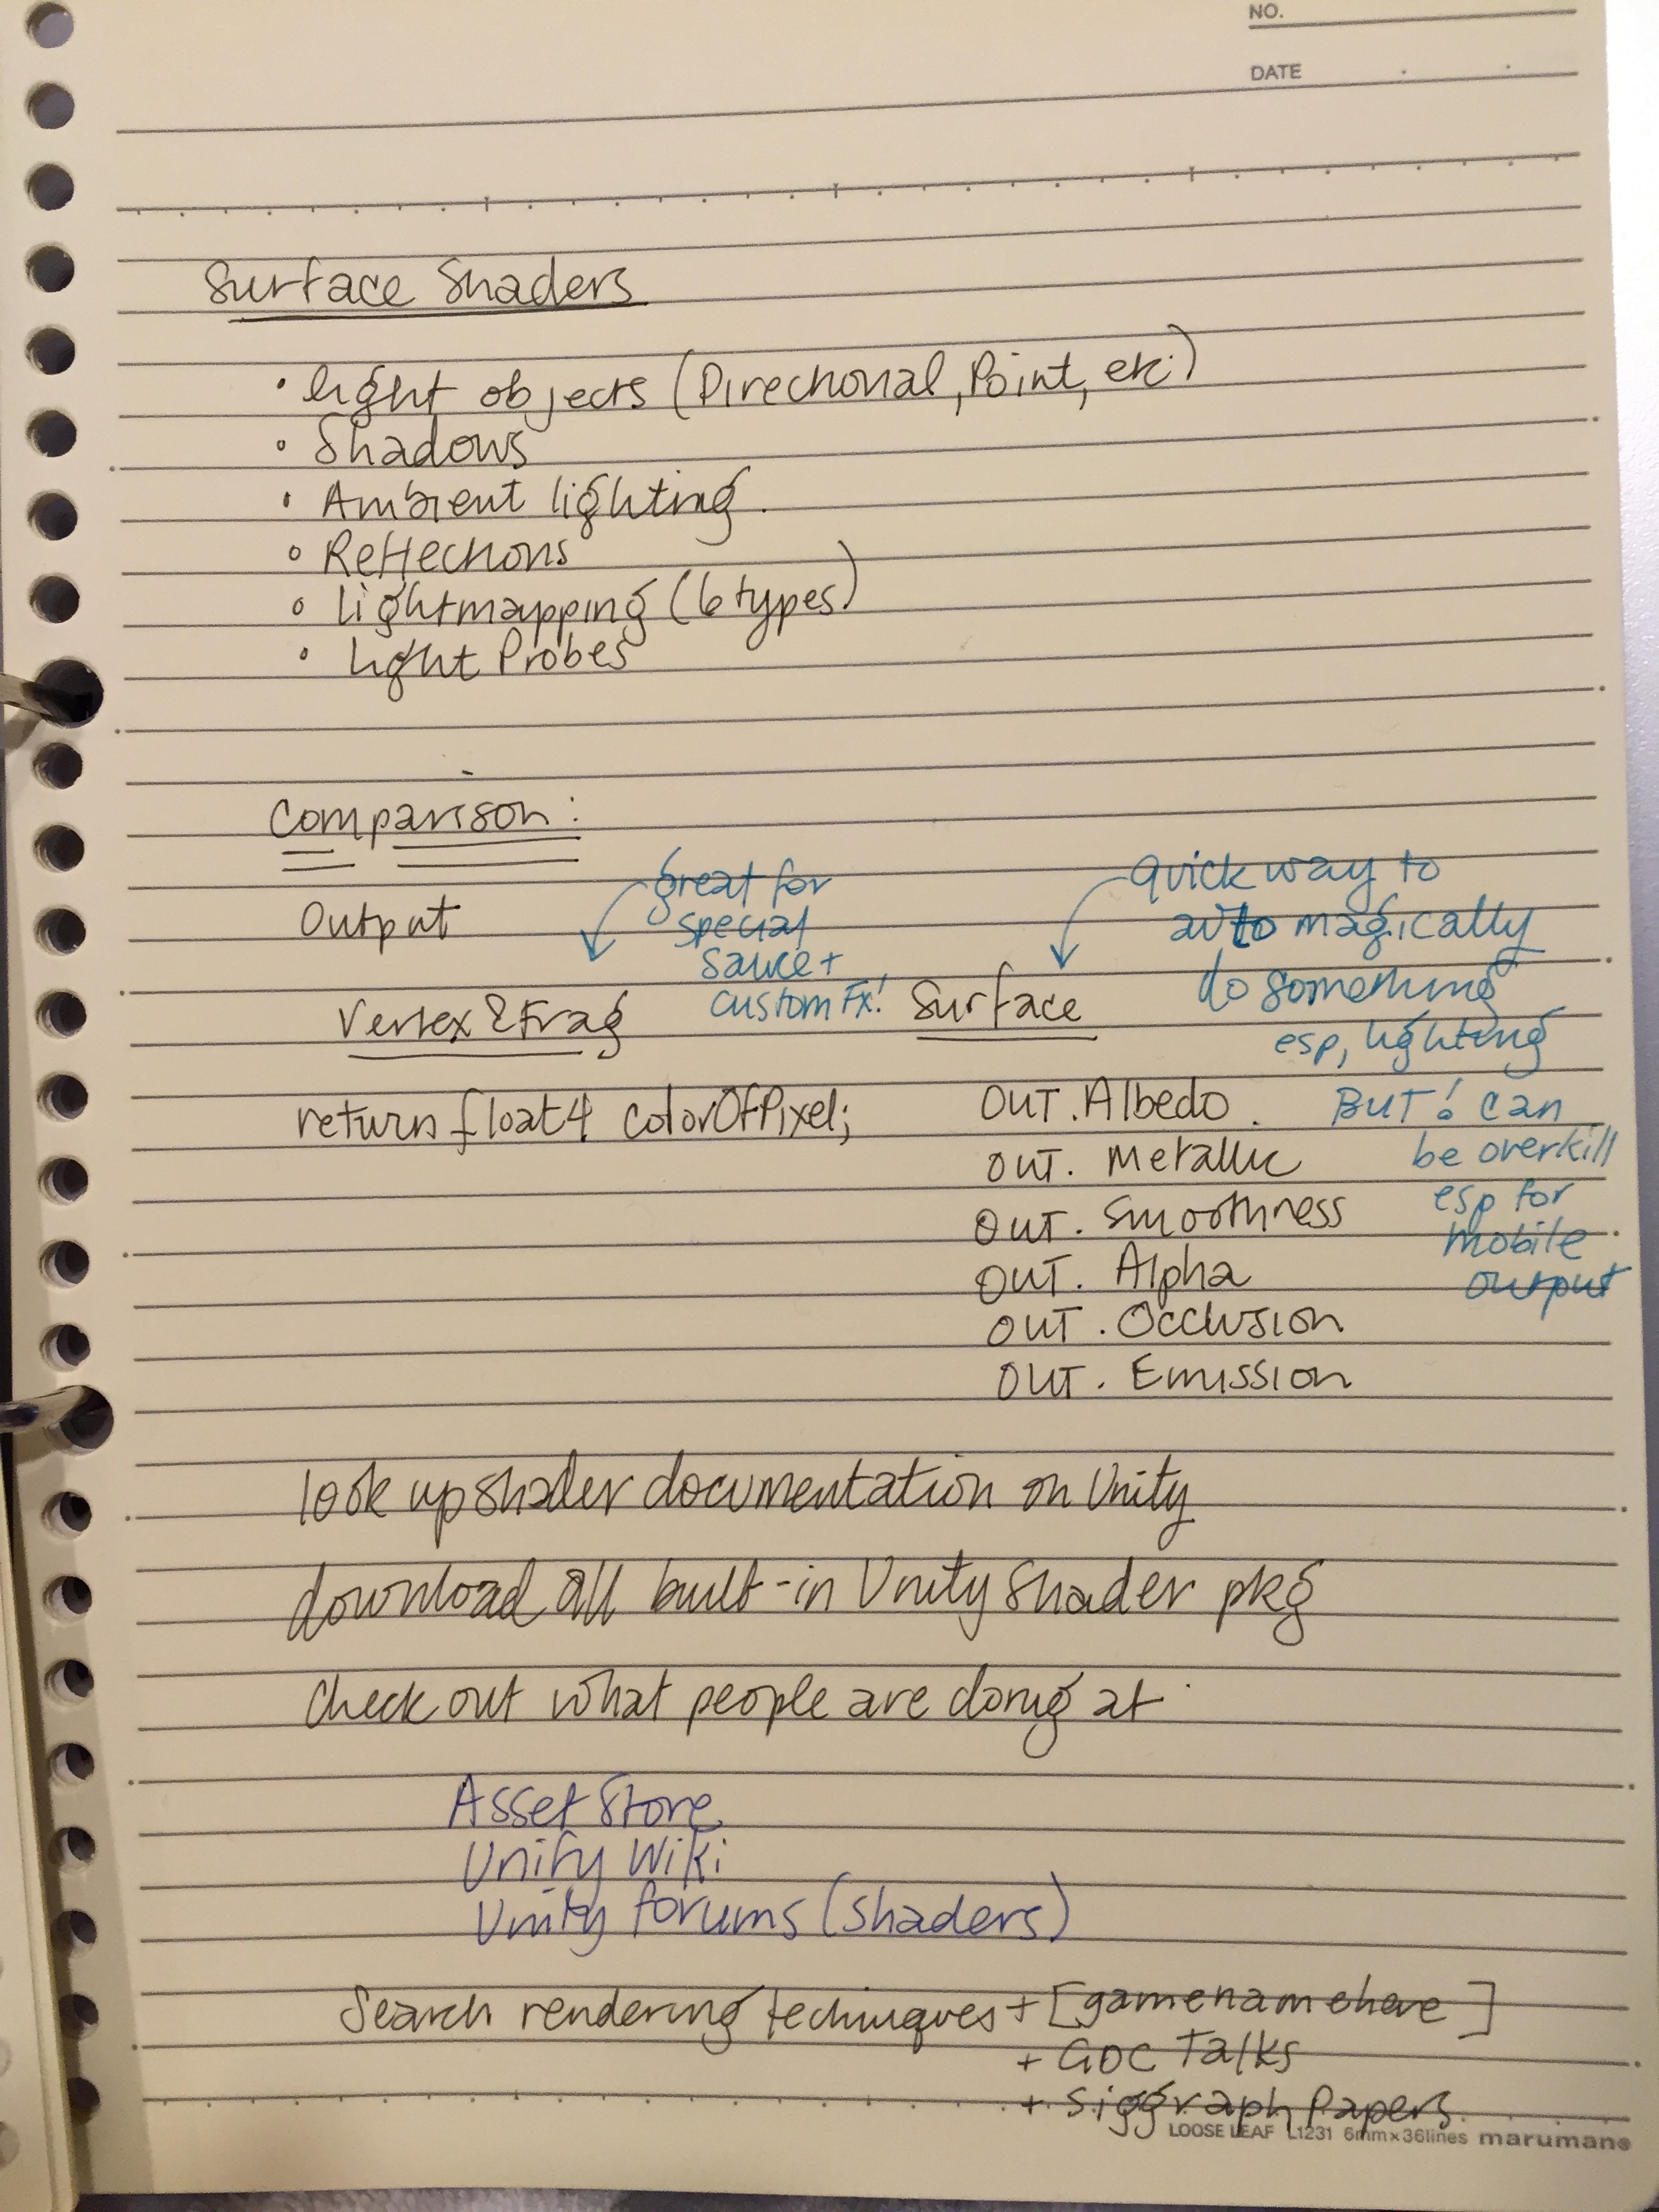 NO.
DATE
Surface Shaders
• light objects (Directional, Point, etc.)
• Shadows
• Ambient lighting.
• Reflections
• Lightmapping (6 types)
• Light Probes
Comparison:
Output
great for
special
sauce +
custom Fx!
quick way to
automagically
do something
esp, lighting
BUT! can
be overkill
esp for
mobile
output
Vertex & Frag
Surface
return float4 colorOfPixel;
OUT. Albedo
OUT. Metallic
OUT. Smoothness
OUT. Alpha
OUT. Occlusion
OUT. Emission
look up shader documentation on Unity
download all built-in Unity shader pkg
check out what people are doing at
Asset Store
Unify Wiki
Unity forums (shaders)
Search rendering techniques + [gamenamehere]
+ GDC Talks
+ Siggraph Papers
LOOSE LEAF L1231 6mm×36lines marumans